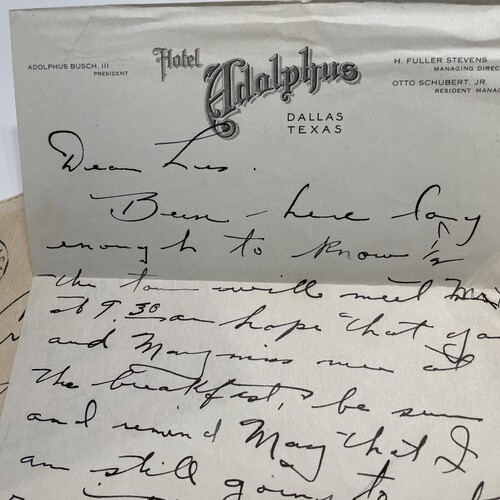 ADOLPHUS BUSCH, III
PRESIDENT
Hotel
Adolphus
DALLAS
TEXAS
H. FULLER STEVENS
MANAGING DIREC
OTTO SCHUBERT, JR.
RESIDENT MANAG
Dear
Been here long
enough to know 1/2
the town will meet
at 9.30 am hope that you
and May miss me at
the breakfast, be sure
and remind May that I
am still going to